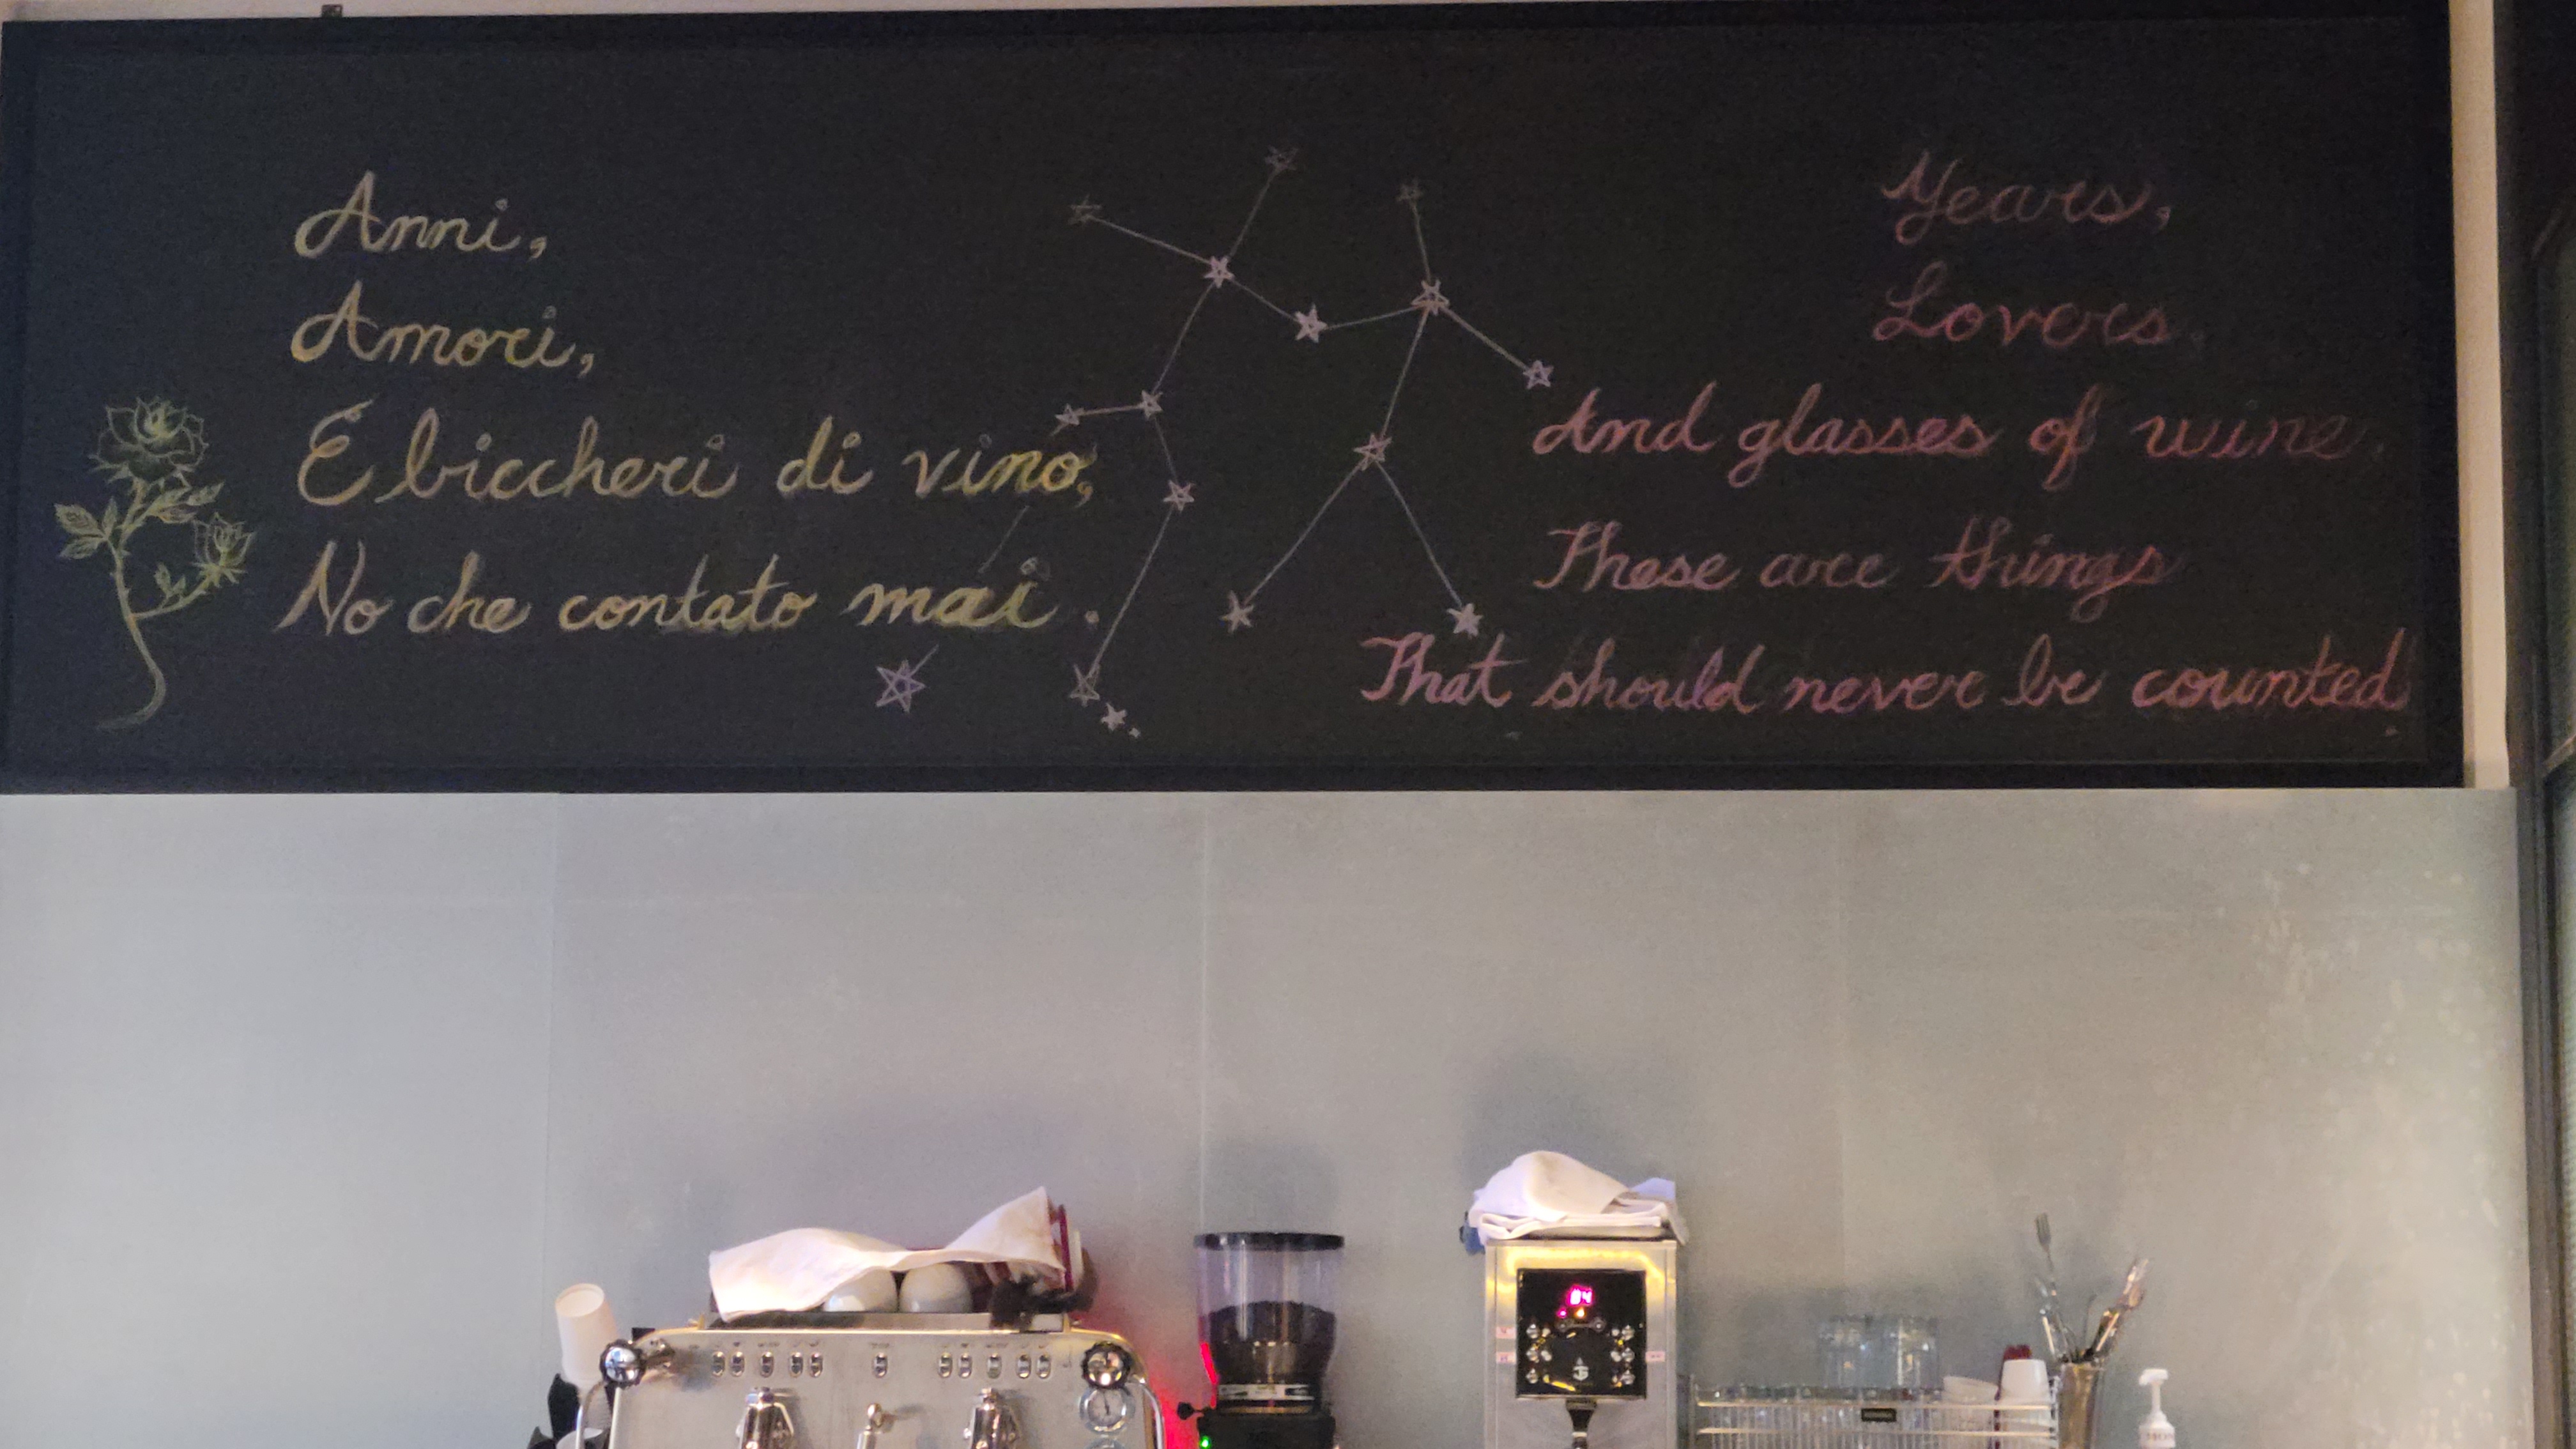 Anni,
Amori,
E biccheri di vino,
No che contato mai.
Years,
Lovers,
And glasses of wine,
These are things
That should never be counted
84